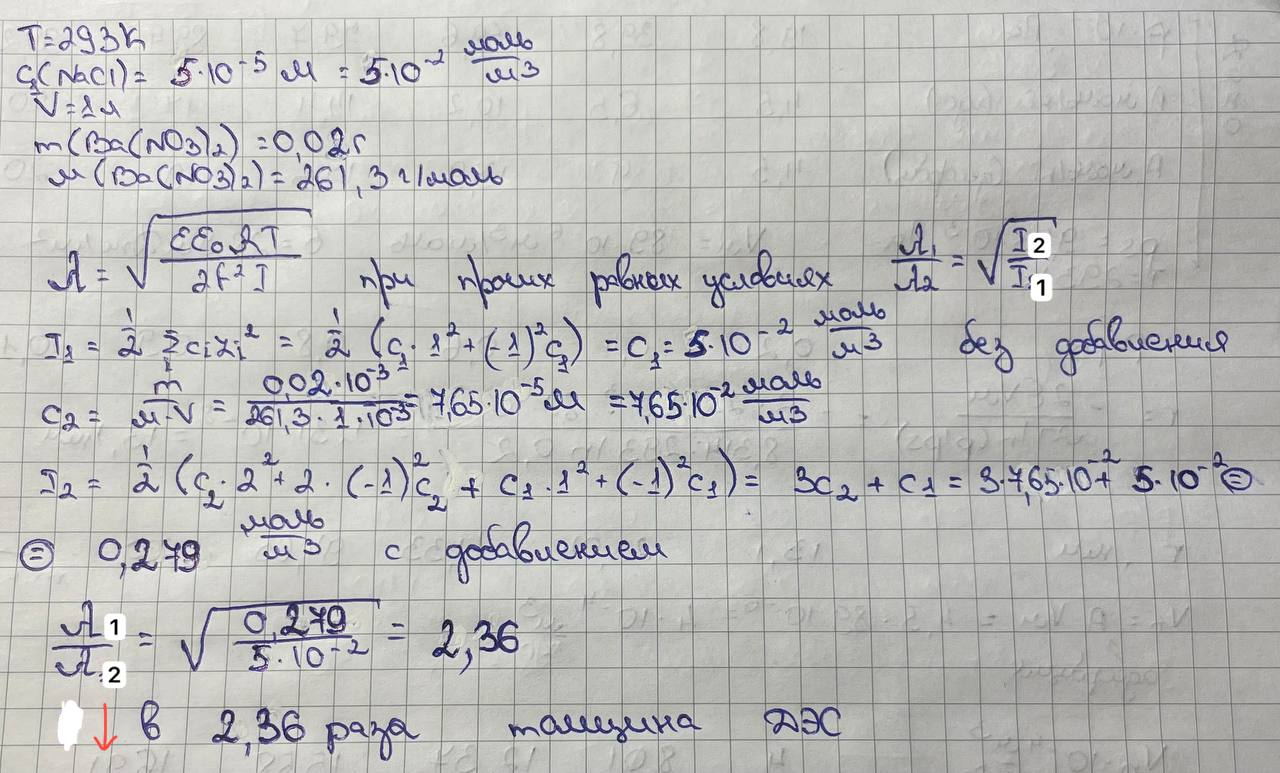 T=293К
C₁(NaCl)= 5·10⁻⁵ М = 5·10⁻² моль/м3
V=1л
m(Ba(NO3)2)=0,02г
М(Ba(NO3)2)=261,3 г/моль
λ = √(εε₀RT/2F²I) при прочих равных условиях λ₁/λ₂ = √(I₂/I₁)
I₁ = 1/2 Σcᵢzᵢ² = 1/2 (c₁·1²+(-1)²c₁) = c₁= 5·10⁻² моль/м3 без добавления
c₂ = m/М·V = 0,02·10⁻³/261,3·1·10⁻³ = 7,65·10⁻⁵М =7,65·10⁻² моль/м3
I₂ = 1/2 (c₂·2²+2·(-1)²c₂ + c₁·1²+(-1)²c₁)= 3c₂+c₁=3·7,65·10⁻²+ 5·10⁻² =
= 0,279 моль/м3 с добавлением
λ₁/λ₂ = √(0,279/5·10⁻²) = 2,36
↓ в 2,36 раза толщина ДЭС